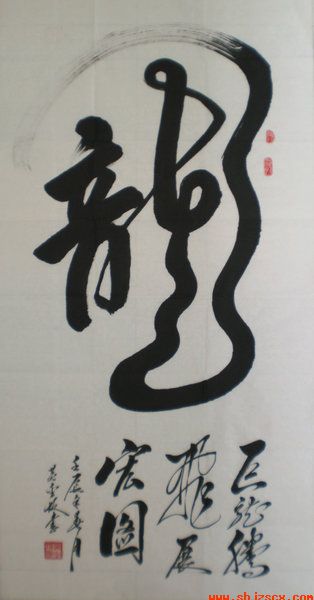 龍
巨龍騰
飛展
宏圖
壬辰年春月
www.sbizscx.c